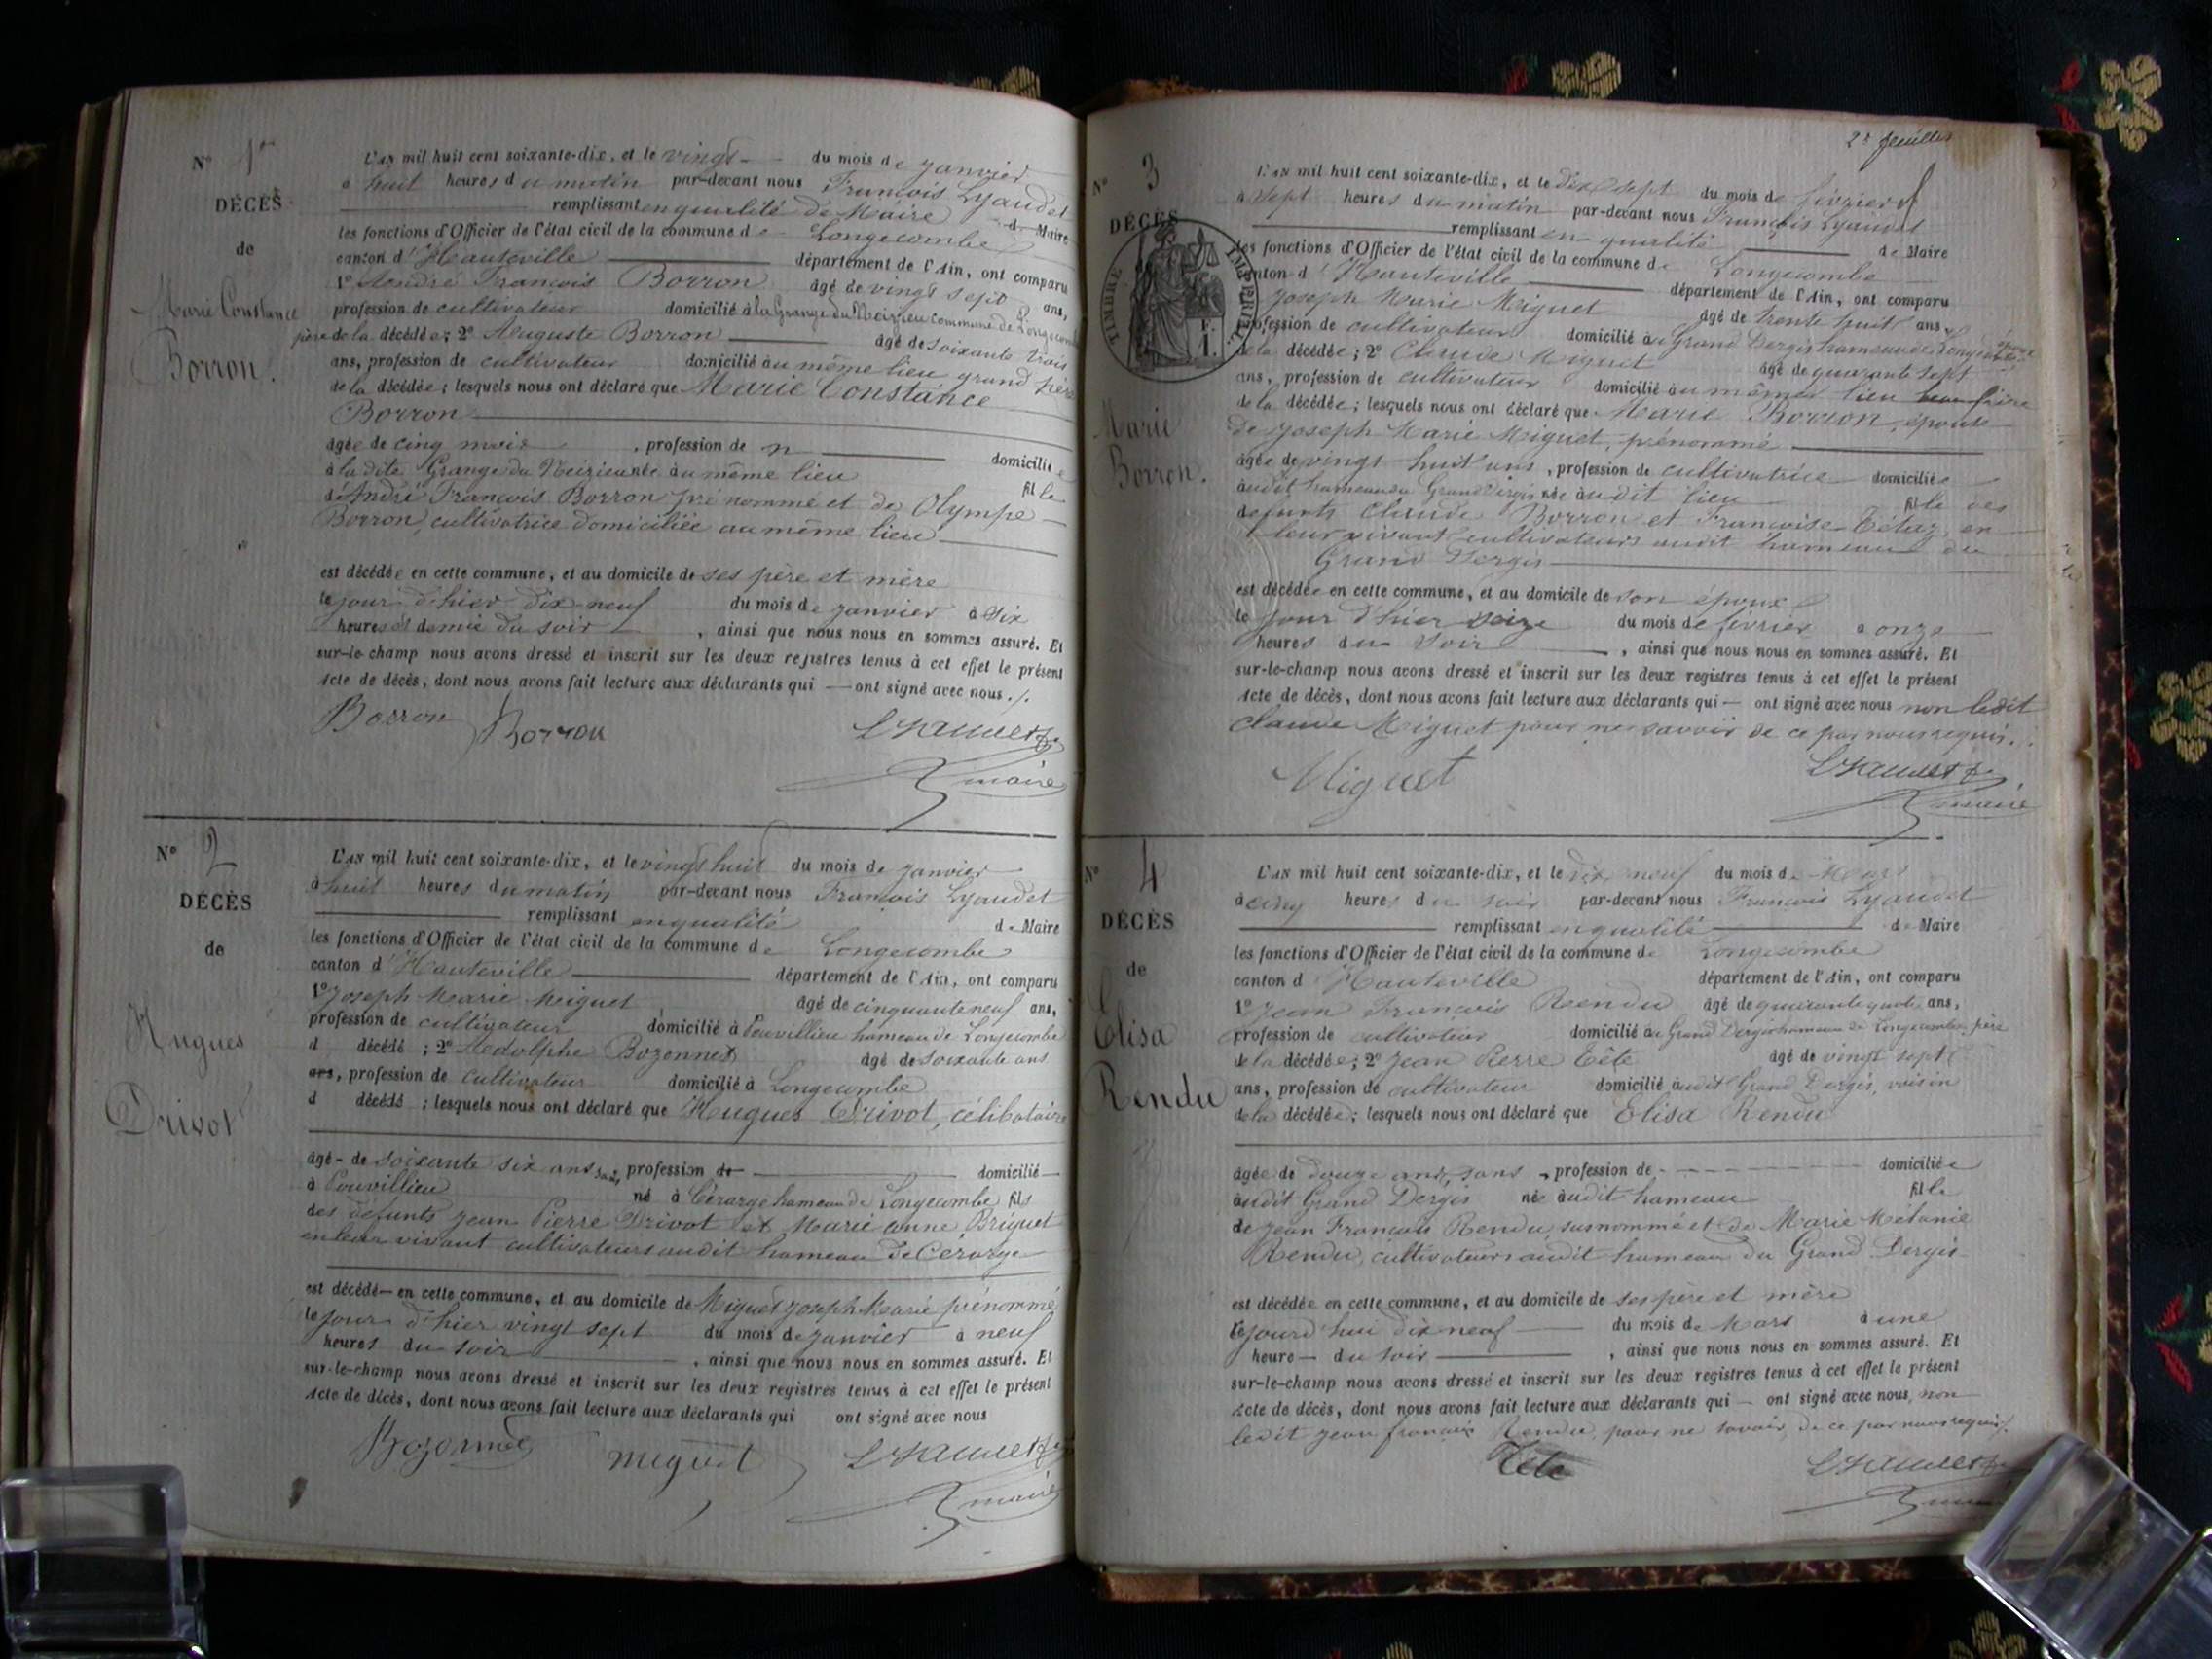 N° 1er
DÉCÈS
de
Marie Constance
Borron.
L'AN mil huit cent soixante-dix, et le vingt du mois de janvier
à huit heures du matin par-devant nous François Lyaudet
remplissant en qualité de Maire de Maire
les fonctions d'Officier de l'état civil de la commune de Longecombe
canton d'Hauteville département de l'Ain, ont comparu
1° André François Borron âgé de vingt sept ans,
profession de cultivateur domicilié à la Grange du commune de
père de la décédée; 2° Auguste Borron âgé de soixante trois
ans, profession de cultivateur domicilié au même lieu grand père
de la décédée; lesquels nous ont déclaré que Marie Constance
Borron
âgée de cinq mois, profession de domiciliée
à la dite Grange du née au même lieu fille
d'André François Borron prénommé et de Olympe
Borron, cultivatrice domiciliée au même lieu
est décédée en cette commune, et au domicile de ses père et mère
le jour d'hier dix-neuf du mois de janvier à six
heures et demie du soir, ainsi que nous nous en sommes assuré. Et
sur-le-champ nous avons dressé et inscrit sur les deux registres tenus à cet effet le présent
acte de décès, dont nous avons fait lecture aux déclarants qui — ont signé avec nous./.
Borron Borron Lyaudet
maire
N° 2
DÉCÈS
de
Hugues
Drivot
L'AN mil huit cent soixante-dix, et le vingt huit du mois de janvier
à huit heures du matin par-devant nous François Lyaudet
remplissant en qualité de Maire
les fonctions d'Officier de l'état civil de la commune de Longecombe
canton d'Hauteville département de l'Ain, ont comparu
1° Joseph Marie Miguet âgé de cinquante neuf ans,
profession de cultivateur domicilié à Pouvillieu hameau de Longecombe
d décédé; 2° Adolphe Bozonnet âgé de soixante ans
ans, profession de cultivateur domicilié à Longecombe
d décédé; lesquels nous ont déclaré que Hugues Drivot, célibataire
âgé de soixante six ans, sans profession de domicilié
à Pouvillieu né à Cérarge hameau de Longecombe fils
des défunts Jean Pierre Drivot et Marie Anne Briguet
en leur vivant cultivateurs audit hameau de Cérarge
est décédé en cette commune, et au domicile de Miguet Joseph Marie prénommé
le jour d'hier vingt sept du mois de janvier à neuf
heures du soir, ainsi que nous nous en sommes assuré. Et
sur-le-champ nous avons dressé et inscrit sur les deux registres tenus à cet effet le présent
acte de décès, dont nous avons fait lecture aux déclarants qui ont signé avec nous
Bozonnet miguet Lyaudet
maire
2e feuillet
N° 3
DÉCÈS
TIMBRE IMPÉRIAL
1 F.
Marie
Borron.
L'AN mil huit cent soixante-dix, et le dix sept du mois de février
à sept heures du matin par-devant nous François Lyaudet
remplissant en qualité de Maire
les fonctions d'Officier de l'état civil de la commune de Longecombe
canton d'Hauteville département de l'Ain, ont comparu
Joseph Marie Miguet âgé de trente huit ans,
profession de cultivateur domicilié au Grand Dergis hameau de Longecombe époux
de la décédée; 2° Claude Miguet âgé de quarante sept
ans, profession de cultivateur domicilié au même lieu beau frère
de la décédée; lesquels nous ont déclaré que Marie Borron, épouse
de Joseph Marie Miguet, prénommé
âgée de vingt huit ans, profession de cultivatrice domiciliée
audit hameau du Grand Dergis née audit lieu fille des
défunts Claude Borron et Françoise Tétaz, en
leur vivant cultivateurs audit hameau du
Grand Dergis
est décédée en cette commune, et au domicile de son époux
le jour d'hier seize du mois de février à onze
heures du soir, ainsi que nous nous en sommes assuré. Et
sur-le-champ nous avons dressé et inscrit sur les deux registres tenus à cet effet le présent
acte de décès, dont nous avons fait lecture aux déclarants qui — ont signé avec nous non ledit
Claude Miguet pour ne savoir de ce par nous requis./.
Miguet Lyaudet
maire
N° 4
DÉCÈS
de
Elisa
Rendu
L'AN mil huit cent soixante-dix, et le dix neuf du mois de Mars
à cinq heures du soir par-devant nous François Lyaudet
remplissant en qualité de Maire
les fonctions d'Officier de l'état civil de la commune de Longecombe
canton d'Hauteville département de l'Ain, ont comparu
1° Jean François Rendu âgé de quarante quatre ans,
profession de cultivateur domicilié au Grand Dergis hameau de Longecombe père
de la décédée; 2° Jean Pierre Tête âgé de vingt sept
ans, profession de cultivateur domicilié audit Grand Dergis, voisin
de la décédée; lesquels nous ont déclaré que Elisa Rendu
âgée de douze ans, sans profession de domiciliée
audit Grand Dergis née audit hameau fille
de Jean François Rendu, susnommé et de Marie Mélanie
Rendu, cultivateurs audit hameau du Grand Dergis
est décédée en cette commune, et au domicile de ses père et mère
le jourd'hui dix neuf du mois de Mars à une
heure du soir, ainsi que nous nous en sommes assuré. Et
sur-le-champ nous avons dressé et inscrit sur les deux registres tenus à cet effet le présent
acte de décès, dont nous avons fait lecture aux déclarants qui — ont signé avec nous, non
ledit Jean François Rendu, pour ne savoir, de ce par nous requis/.
Tête Lyaudet
maire